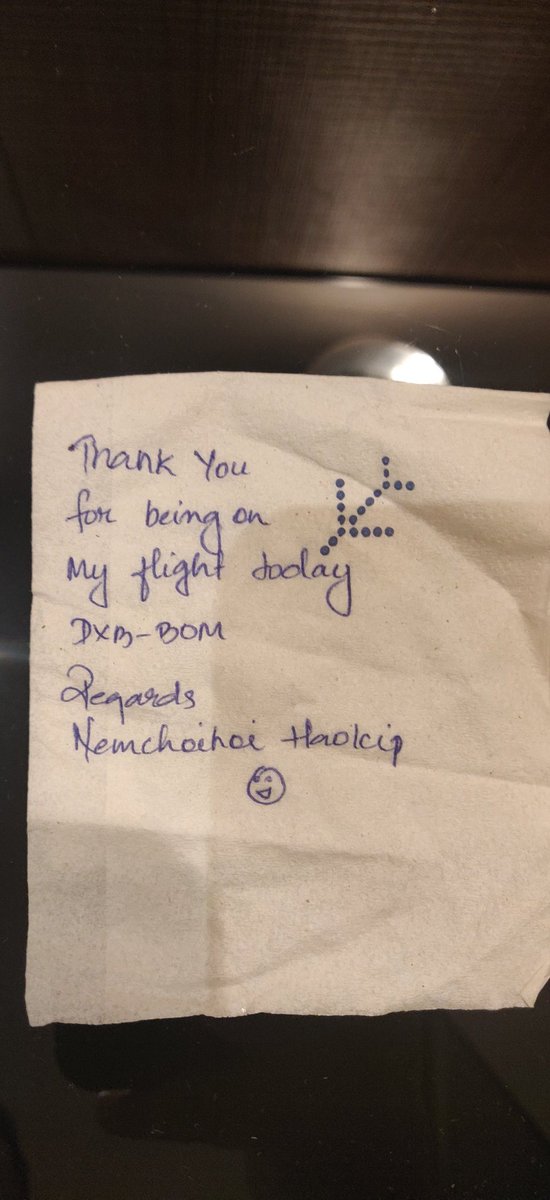 Thank You
for being on
My flight today
DXB-BOM
Regards
Nemchoihoi Haokip